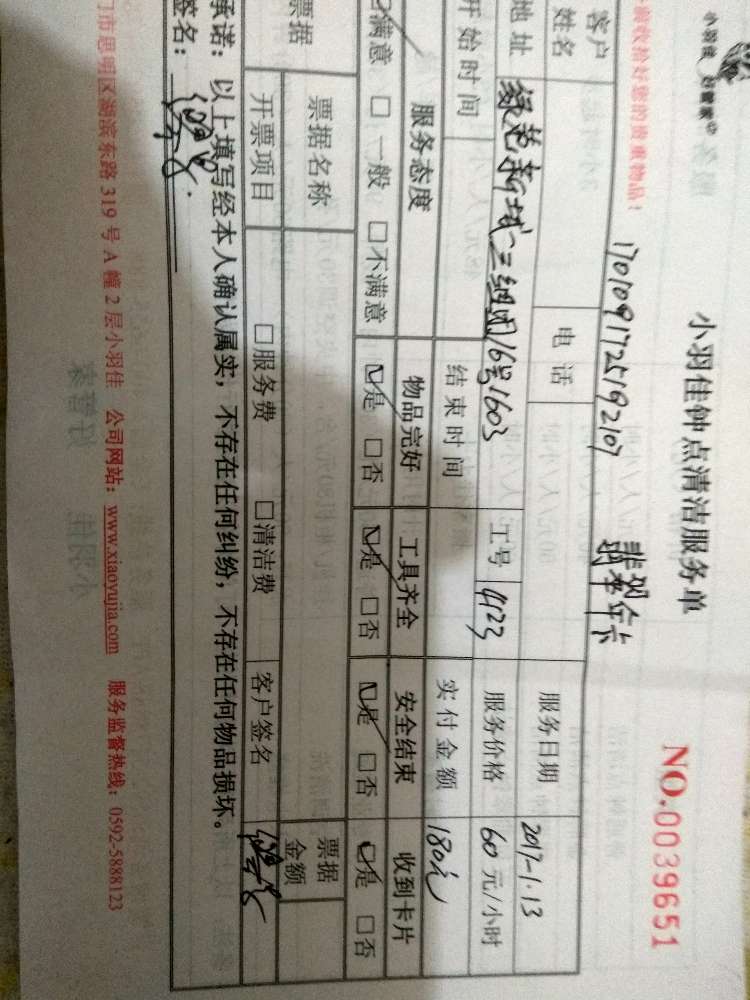 小羽佳 好管家
小羽佳钟点清洁服务单
NO.0039651
前收拾好您的贵重物品！
1701091725192107 翡翠金卡
客户姓名 电话 服务日期 2017-1.13
地址 绿苑新城三组团16号1603 工号 4123 服务价格 60元/小时
开始时间 结束时间 实付金额 180元
服务态度 物品完好 工具齐全 安全结束 收到卡片
满意 □一般 □不满意 □是 □否 □是 □否 □是 □否 □是 □否
票据 票据名称 票据金额
开票项目 □服务费 □清洁费 客户签名
承诺：以上填写经本人确认属实，不存在任何纠纷，不存在任何物品损坏。
签名：
门市思明区湖滨东路319号A幢2层小羽佳 公司网站：www.xiaoyujia.com 服务监督热线：0592-5888123